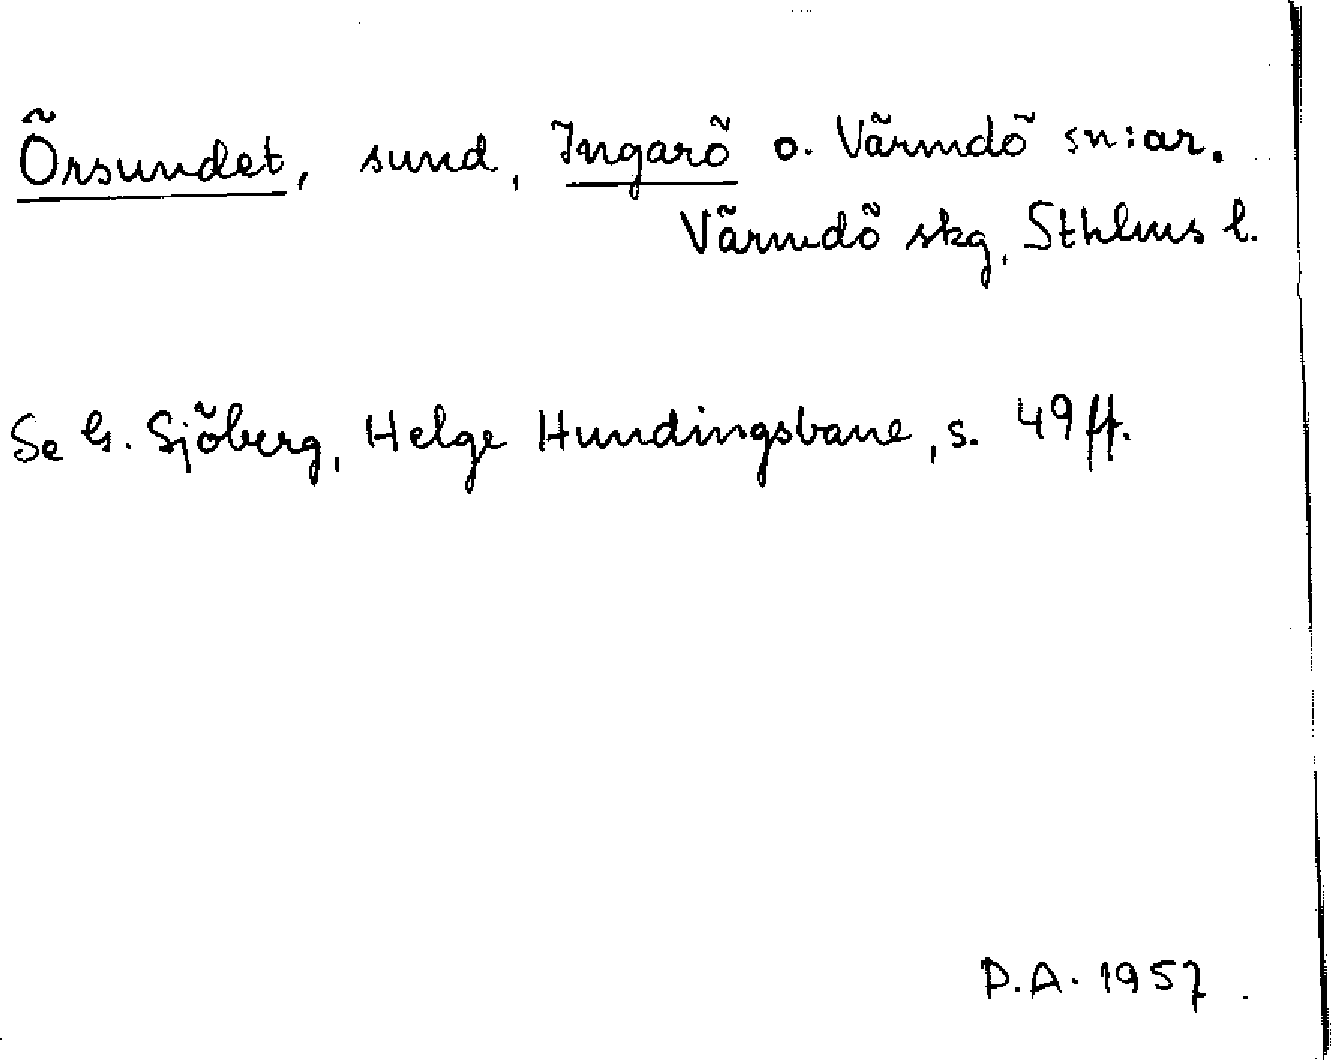 Örsundet, sund, Ingarö o. Värmdö sn:ar.
Värmdö skg, Sthlms l.
Se G. Sjöberg, Helge Hundingsbane, s. 49 ff.
P.A. 1957.